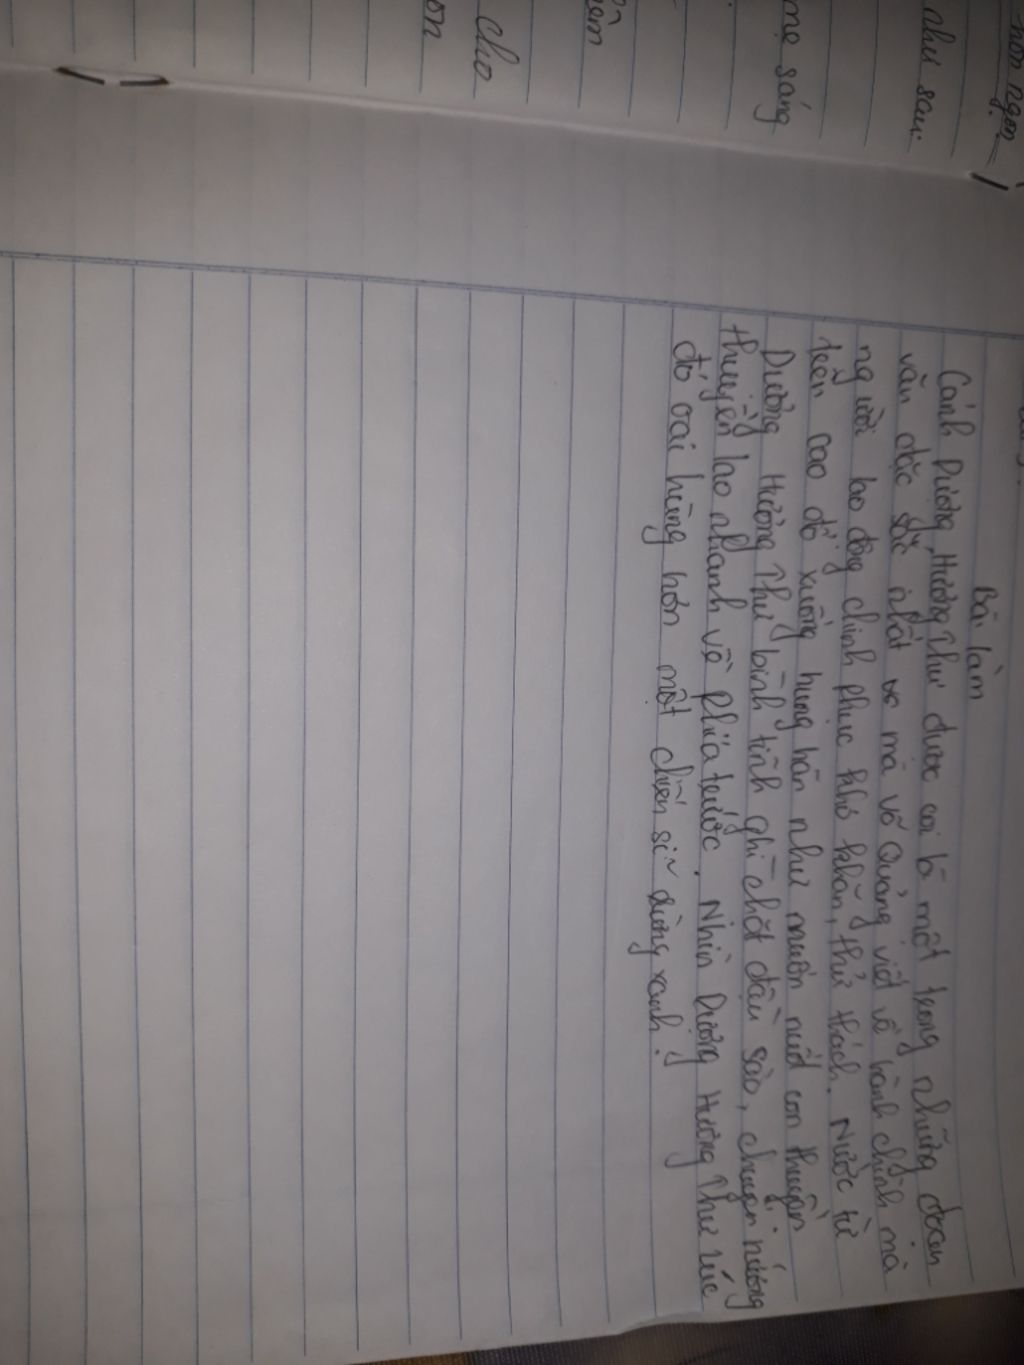 non ngọn
như sau:
mẹ sáng
cho
Bài làm
Cảnh Dượng Hương Thư được coi là một trong những đoạn
văn đặc sắc nhất mà võ Quảng viết về hành chình mà
người lao động chinh phục khó khăn, thử thách. Nước từ
trên cao đổ xuống hung hãn như muốn nuốt con thuyền
Dượng Hương Thư bình tĩnh ghì chặt đầu sào, chuyển hướng
thuyền lao nhanh về phía trước. Nhìn Dượng Hương Thư lúc
đó oai hùng hơn một chiến sĩ dũng xanh.